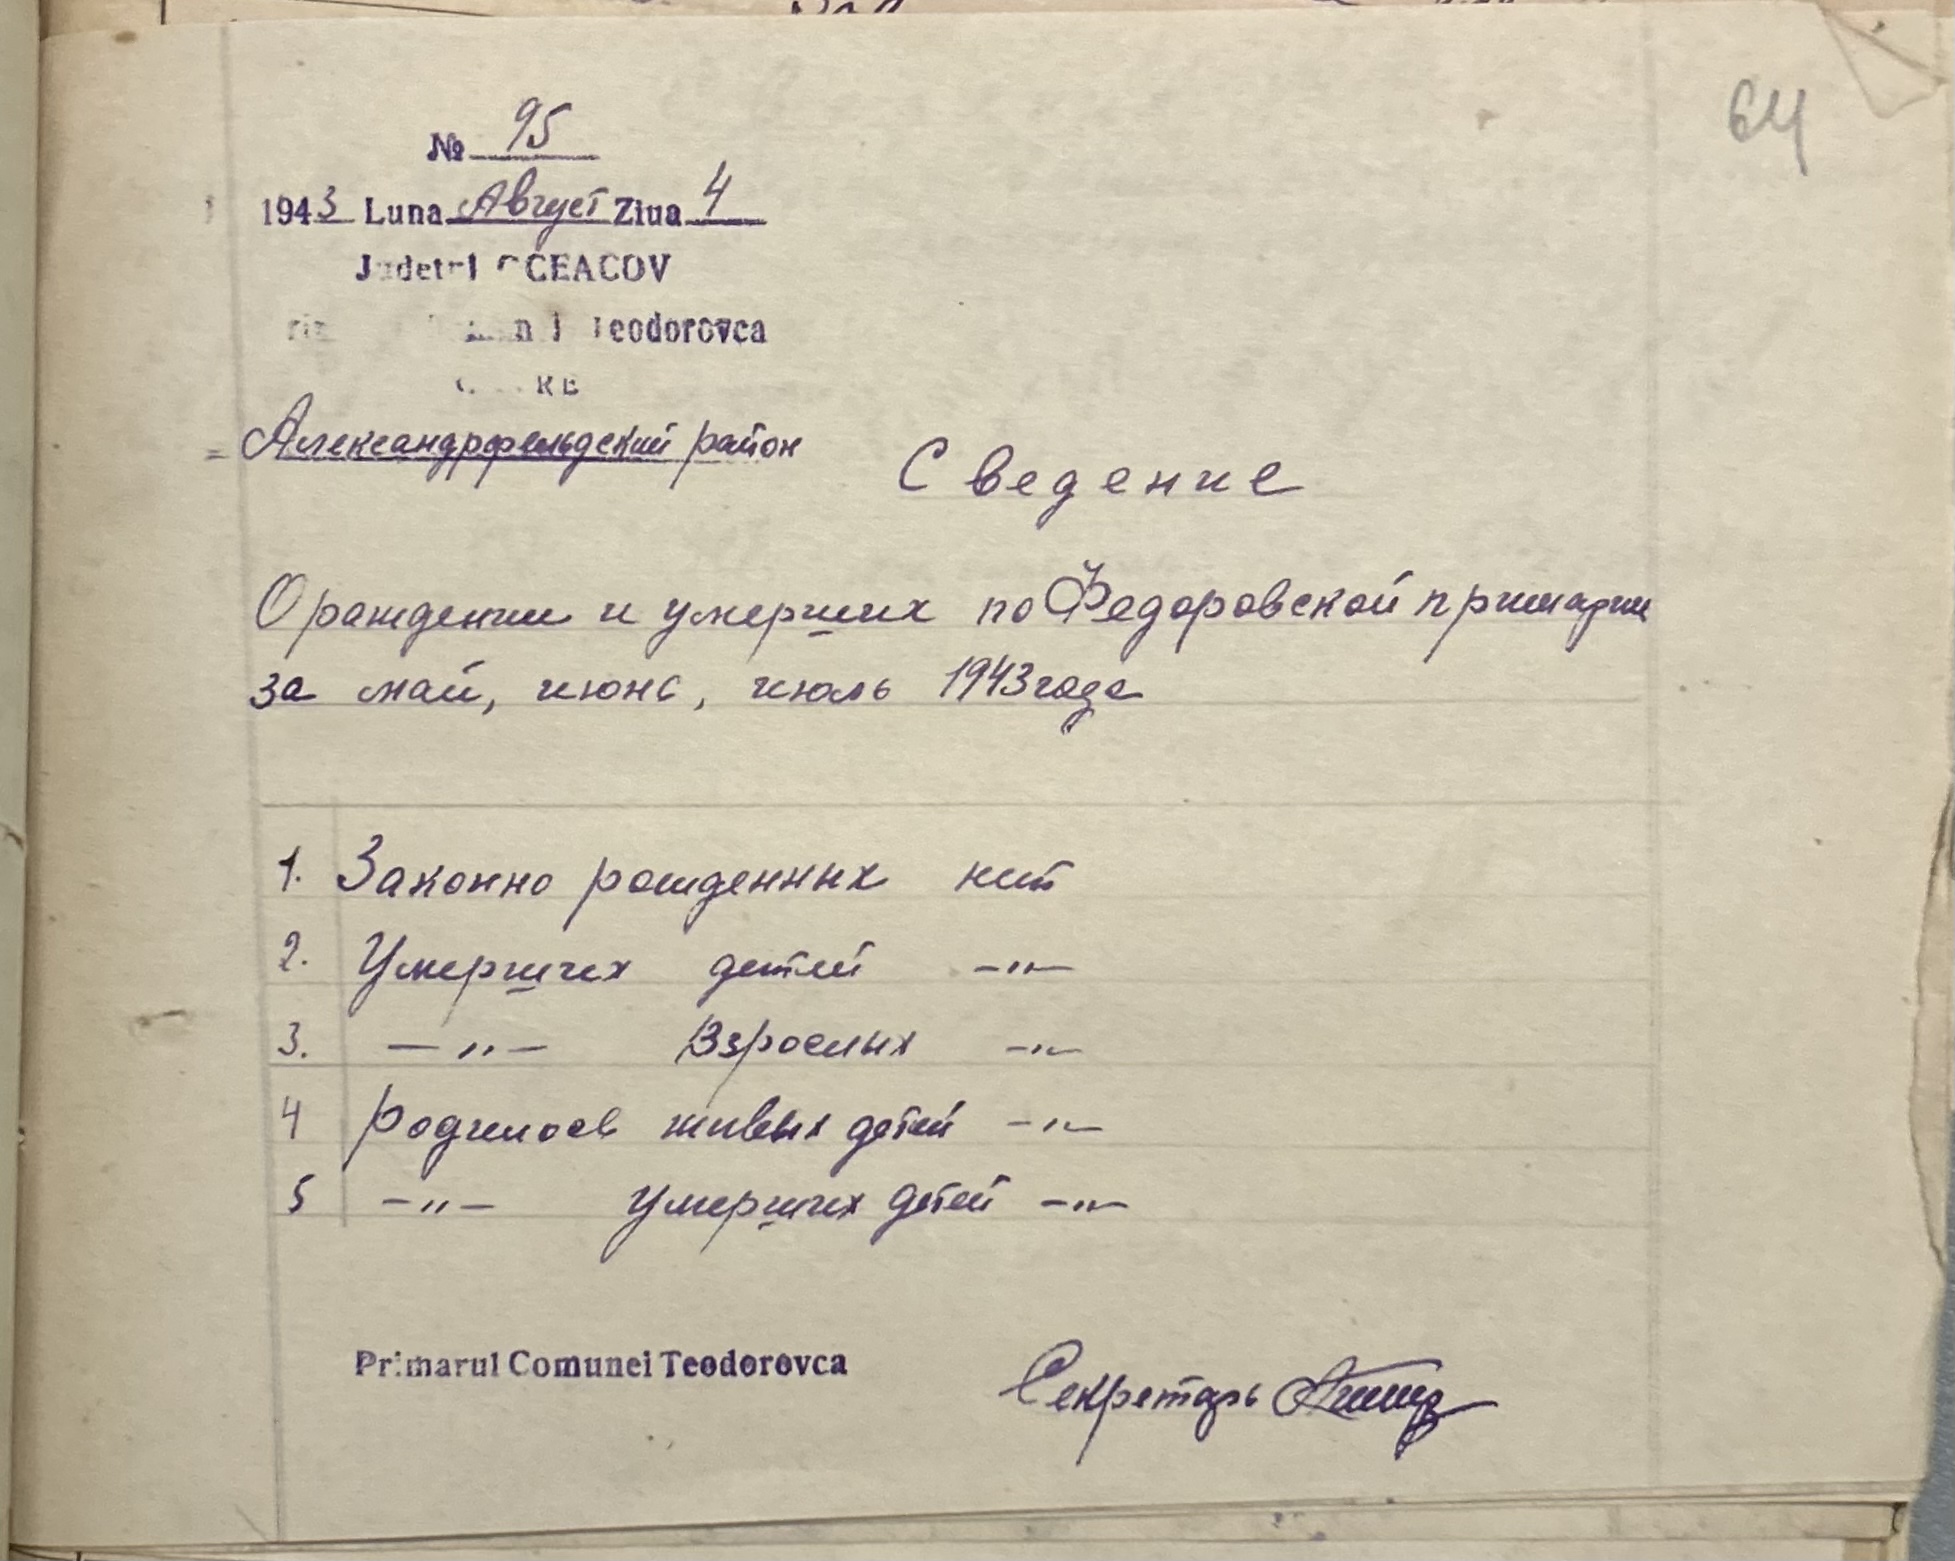 64
№ 95
1943 Luna Август Ziua 4
Judetul OCEACOV
Teodorovca
CĂTRE
Александрфельдский район
Сведение
О рождении и умерших по Федоровской примарии
за май, июнь, июль 1943 года
1. Законно рожденных нет
2. Умерших детей -"-
3. -"- Взрослых -"-
4 Родилось живых детей -"-
5 -"- умерших детей -"-
Primarul Comunei Teodorovca
Секретарь